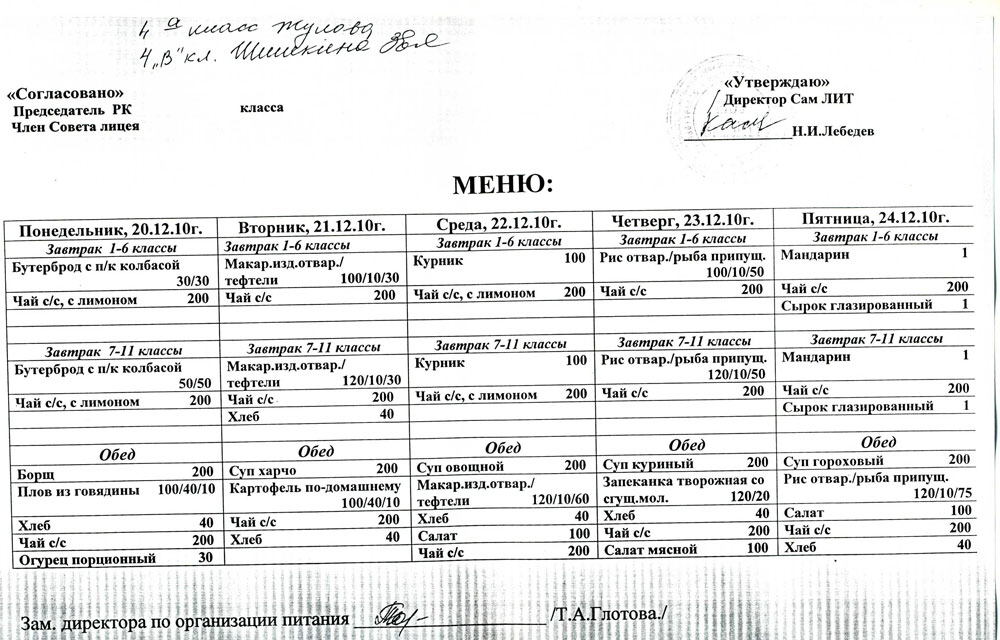 4 а класс Жулова
4 „В" кл. Шишкина Зоя
«Согласовано»
Председатель РК класса
Член Совета лицея
«Утверждаю»
Директор Сам ЛИТ
Н.И.Лебедев
МЕНЮ:
Понедельник, 20.12.10г. Вторник, 21.12.10г. Среда, 22.12.10г. Четверг, 23.12.10г. Пятница, 24.12.10г.
Завтрак 1-6 классы Завтрак 1-6 классы Завтрак 1-6 классы Завтрак 1-6 классы Завтрак 1-6 классы
Бутерброд с п/к колбасой Макар.изд.отвар./ Курник 100 Рис отвар./рыба припущ. Мандарин 1
30/30 тефтели 100/10/30 100/10/50
Чай с/с, с лимоном 200 Чай с/с 200 Чай с/с, с лимоном 200 Чай с/с 200 Чай с/с 200
Сырок глазированный 1
Завтрак 7-11 классы Завтрак 7-11 классы Завтрак 7-11 классы Завтрак 7-11 классы Завтрак 7-11 классы
Бутерброд с п/к колбасой Макар.изд.отвар./ Курник 100 Рис отвар./рыба припущ. Мандарин 1
50/50 тефтели 120/10/30 120/10/50
Чай с/с, с лимоном 200 Чай с/с 200 Чай с/с, с лимоном 200 Чай с/с 200 Чай с/с 200
Хлеб 40 Сырок глазированный 1
Обед Обед Обед Обед Обед
Борщ 200 Суп харчо 200 Суп овощной 200 Суп куриный 200 Суп гороховый 200
Плов из говядины 100/40/10 Картофель по-домашнему Макар.изд.отвар./ Запеканка творожная со Рис отвар./рыба припущ.
100/40/10 тефтели 120/10/60 сгущ.мол. 120/20 120/10/75
Хлеб 40 Чай с/с 200 Хлеб 40 Хлеб 40 Салат 100
Чай с/с 200 Хлеб 40 Салат 100 Чай с/с 200 Чай с/с 200
Огурец порционный 30 Чай с/с 200 Салат мясной 100 Хлеб 40
Зам. директора по организации питания /Т.А.Глотова./